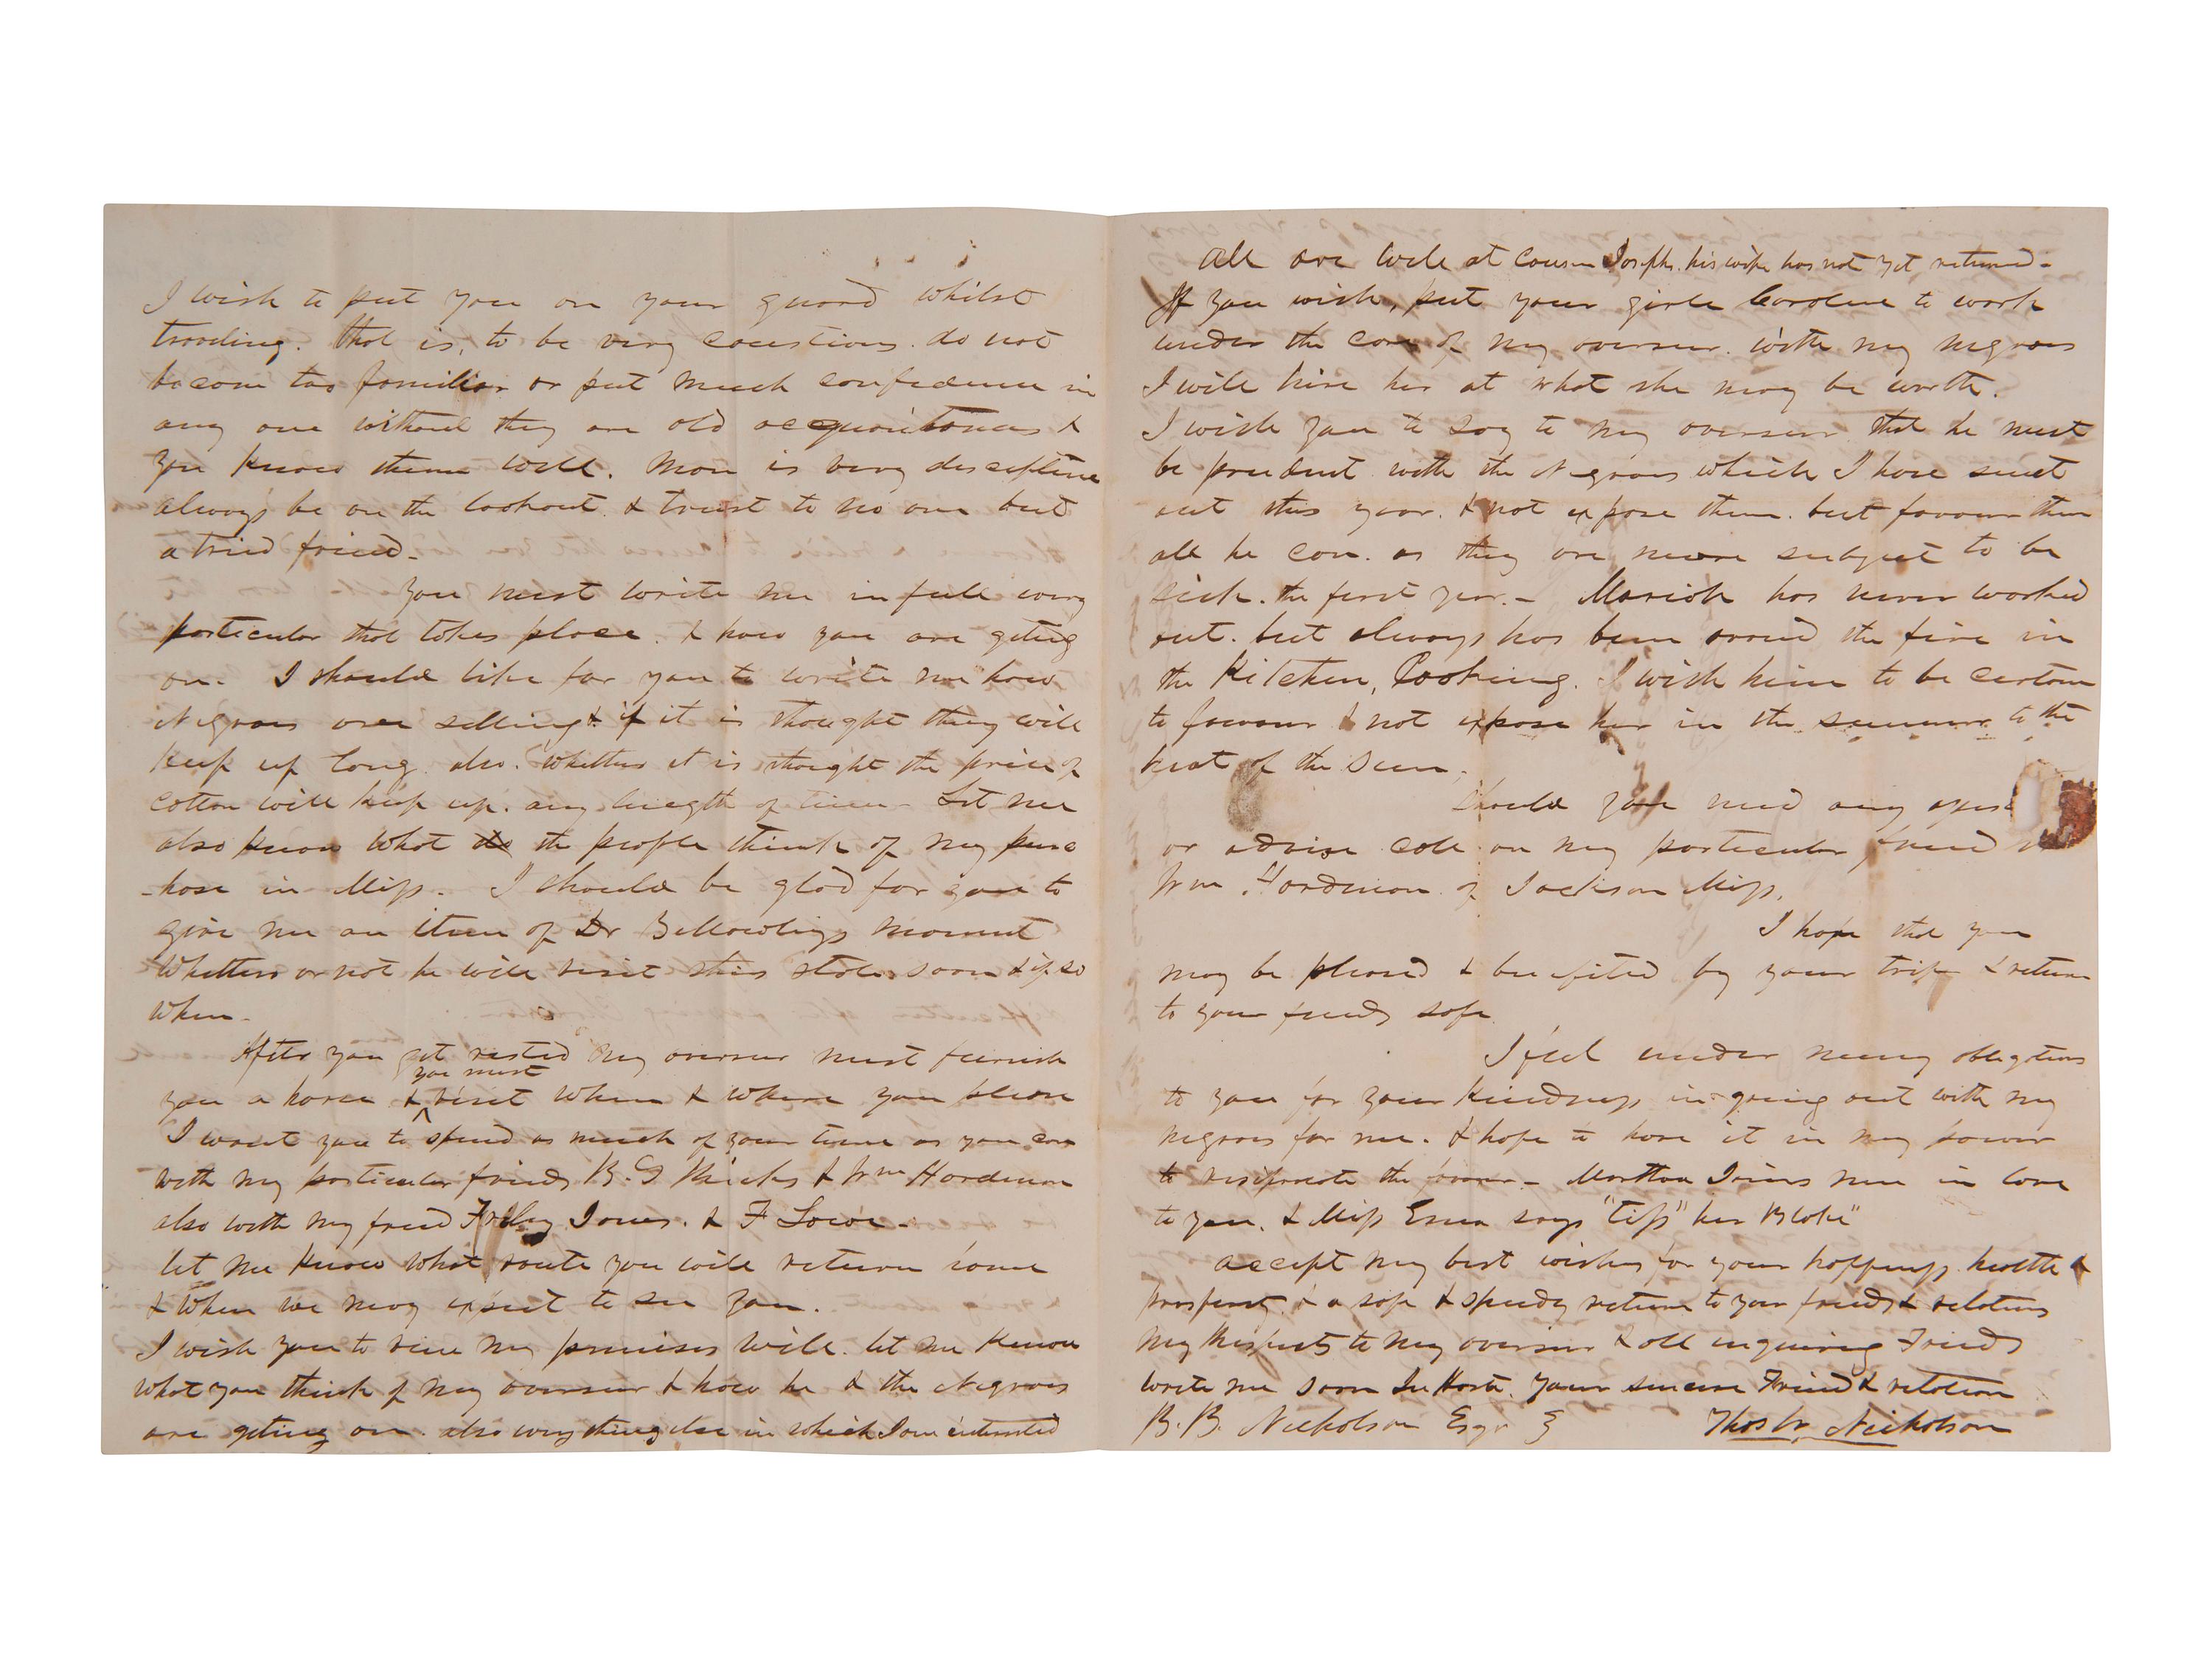 I wish to put you on your guard whilst
traveling. that is, to be very caustious. do not
become too familiar or put much confidence in
any one without they are old acquaintances &
you know theme well. Man is very disceptive
always be on the lookout & trust to no one but
a tried friend -
You must write me in full every
particular that takes place. & how you are geting
on. I should like for you to write me how
Negroes are selling & if it is thought they will
keep up long. also. whether it is thought the price of
cotton will keep up. any length of time - Let me
also know what the people think of my purc
-hase in Miss. I should be glad for you to
give me an item of Dr movement
Whether or not he will visit this state soon & if so
when -
After you get rested my overseer must furnish
you must
you a horse & visit when & where you please
I want you to spend as much of your time as you can
with my particular friends B. S Ricks & Wm Hardeman
also with my friend Jones. & F
let me know what route you will return home
& when we may expect to see you.
I wish you to view my premises well. let me know
what you think of my overseer & how he & the Negroes
are geting on. also every thing else in which I am interested
All are well at Cousin Josephs. his wife has not yet returned -
If you wish, put your girl Caroline to work
under the care of my overseer. with my negroes
I will hire her at what she may be worth.
I wish you to say to my overseer that he must
be prudent with the Negroes which I have sent
out this year. & not expose them. but favour them
all he can. as they are more subject to be
sick. the first year. - Mariah has never worked
out. but always has been around the fire in
the Kitchen, Cooking. I wish him to be certain
to favour & not expose her in the summer to the
heat of the Sun.
Should you need any
or advise call on my particular friend
Wm Hardeman of Jackson Miss.
I hope that you
may be pleased & benefited by your trip & return
to your friends safe
I feel under many obligations
to you for your kindness in going out with my
negroes for me. & hope to have it in my power
to the favour - Martha Joins me in love
to you. & Miss says "
accept my best wishes for your happiness health &
prosperity & a safe & speedy return to your friends & relations
My Respects to my overseer & all inquiring Friends
write me soon In Haste. Your sincere Friend & relation
B. B. Nicholson Esqr } Thos W. Nicholson